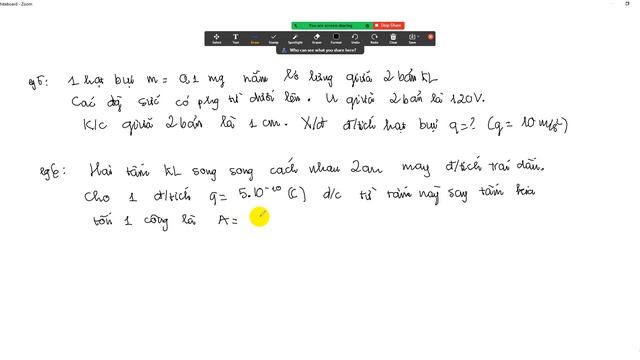 Whiteboard - Zoom
You are screen sharing Stop Share
Select Text Draw Stamp Spotlight Eraser Format Undo Redo Clear Save
Who can see what you share here?
eg5: 1 hạt bụi m = 0,1 mg nằm lơ lửng giữa 2 bản KL
Các đg sức có phg từ dưới lên. U giữa 2 bản là 120V.
K/c giữa 2 bản là 1 cm. X/đ đ/tích hạt bụi q=? (g = 10 m/s²)
eg6: Hai tấm KL song song cách nhau 2cm may đ/tích trái dấu.
Cho 1 đ/tích q = 5.10⁻¹⁰ (C) d/c từ tấm này say tấm kia
tốn 1 công là A =